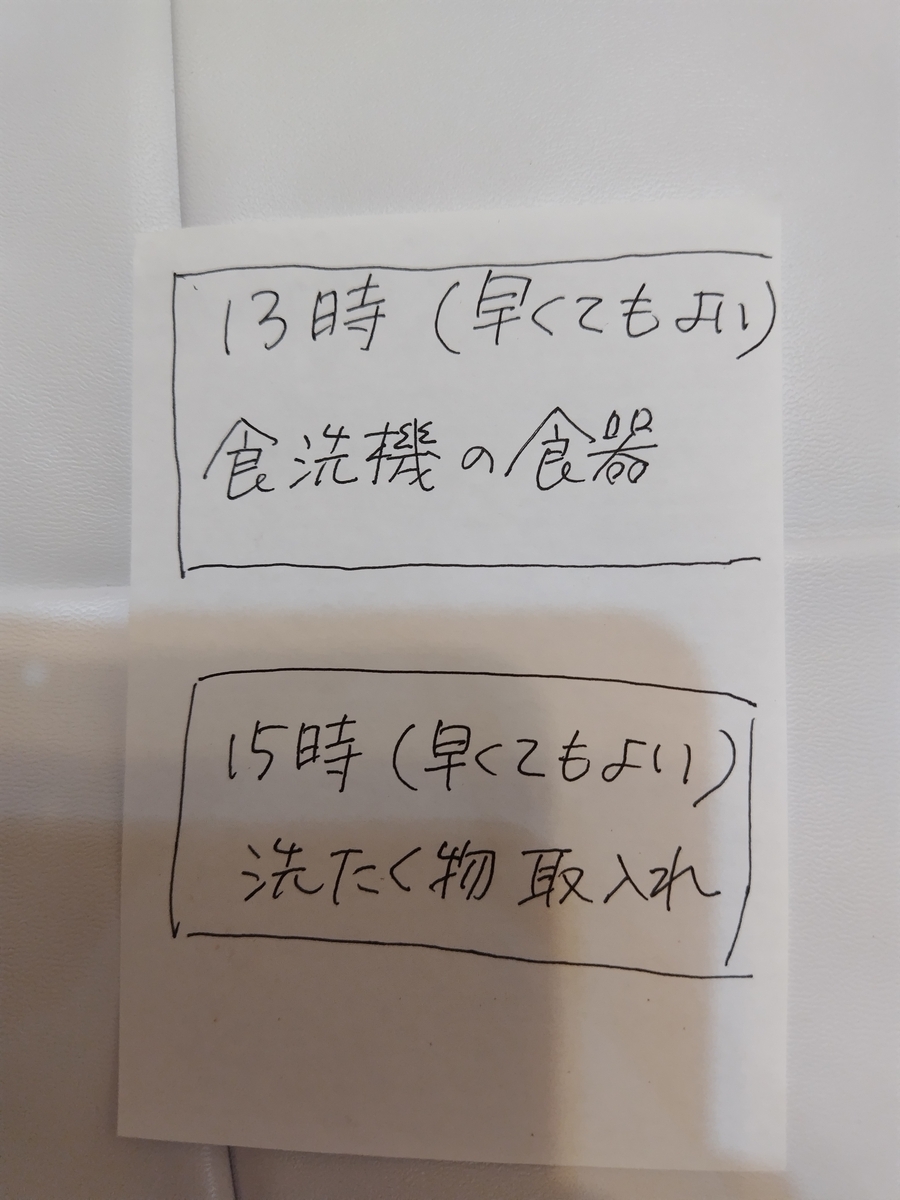 13時(早くてもよい)
食洗機の食器
15時(早くてもよい)
洗たく物 取入れ